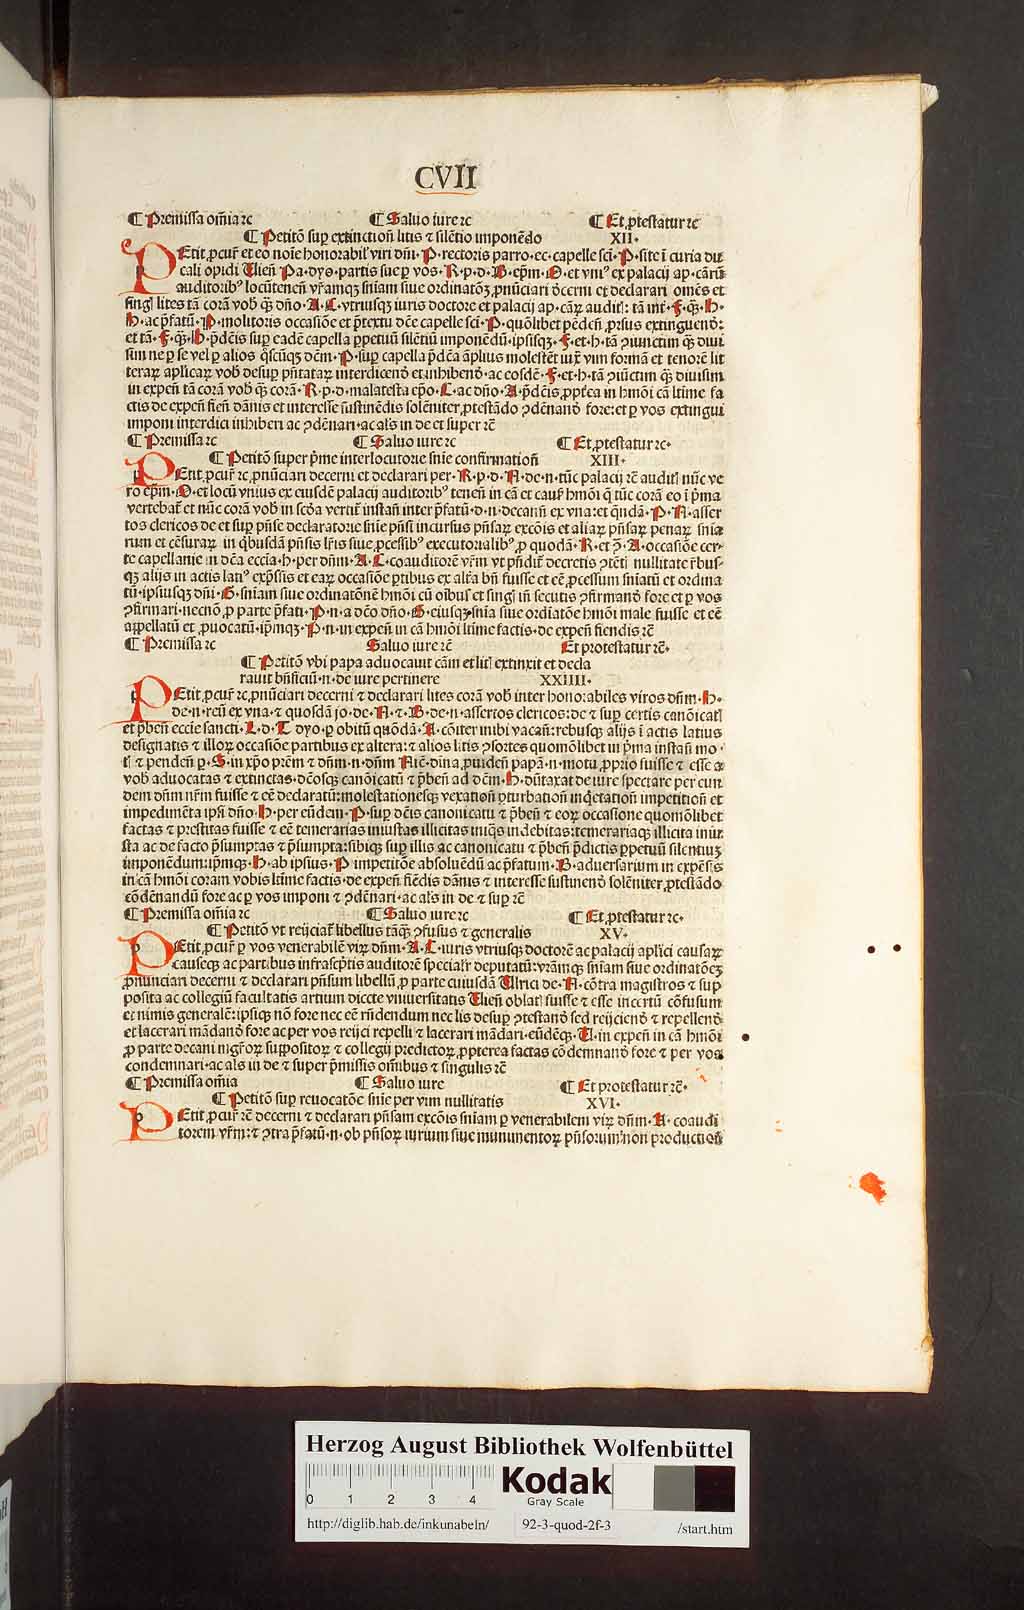 CVII
¶ Premissa om̄ia ⁊c ¶ Saluo iure ⁊c ¶ Et ꝓtestatur ⁊c
¶ Petitō suꝑ extinctioñ litis ⁊ silētio imponēdo XII.
PEtit ꝓcur̄ et eo noīe honorabil̄ viri dn̄i . P . rectoris parro . ec . capelle sci . P . site ī curia du
cali opidi Uień Pa . dyo . partis sue ꝑ vos . R . p . d . B . ep̄m . O . et vniꝰ ex palacij ap . cārū
auditoribꝰ locūtenen̄ vr̄amqꝫ sn̄iam siue ordinatōꝫ ꝓnūciari ďcerni et declarari omēs et
singl̄ lites tā corā vob̄ qꝫ dn̄o . A . L . vtriusqꝫ iuris doctore et palacij ap . cāꝝ audit̄ : tā int̄ . F . qꝫ . H .
H . ac p̄fatū . P . molitoris occasiōe et p̄textu dc̄e capelle sci . P . quōlibet pēden̄ ꝓrsus extinguenď :
et tā . F . qꝫ . H . p̄dēis suꝑ eadē capella ꝑpetuū silētiū imponēdū . ipsisqꝫ . F . et . h . tā ꝯiunctim qꝫ diui
sim ne ꝑ se vel ꝑ alios q̄scūqꝫ dēm . P . suꝑ capella p̄dc̄a āplius molestēt iux̄ vim formā et tenorē lit
teraꝝ aplicaꝝ vob̄ desuꝑ pn̄tataꝝ interdicenď et inhibenď . ac eosdē . F . et . h . tā ꝯiūctim qꝫ diuisim
in expen̄ tā corā vob̄ qꝫ corā . R . p . d . malatesta ep̄o . L . ac dn̄o . A . p̄dēis ꝓpt̄ea in hmōi cā l̄time fa
ctis de expen̄ fień dānis et interesse sustinēdis solēniter ꝓtestādo ꝯdēnanď fore : et ꝑ vos extingui
imponi interdici inhiberi ac ꝯdēnari . ac al̄s in de et super ⁊c̄
¶ Premissa ⁊c ¶ Saluo iure ⁊c ¶ Et ꝓtestatur ⁊c .
¶ Petitō super p̄me interlocutorie sn̄ie confirmatioñ XIII .
PEtit ꝓcur̄ ⁊c ꝓnūciari decerni et declarari per . R . p . d . A . de . n . tūc palacij ⁊c̄ audit̄ nūc ve
ro ep̄m . O . et locū vnius ex eiusdē palacij auditoribꝰ tenen̄ in cā et caus̄ hmōi q̄ tūc corā eo ī p̄ma
vertebat̄ et nūc corā vob̄ in scďa vertit̄ instan̄ inter p̄fatū . d . n . decan̄ ex vna : et qn̄dā . P . N . asser
tos clericos de et suꝑ pn̄se declaratorie sn̄ie pn̄si incursus pn̄saꝝ excōis et aliaꝝ pn̄saꝝ penaꝝ sn̄ia
rum et cēsuraꝝ in qͥbusdā pn̄sis lr̄is siue ꝓcessibꝰ executorialibꝰ ꝓ quodā . R . et ꝯ . A . occasiōe cer⸗
te capellanie in dc̄a eccīa . h . per dn̄m . A . L . coauditorē vr̄m vt pn̄dit̄ decretis ꝯtēt̄ nullitate r̄bus⸗
qꝫ alijs in actis latiꝰ exp̄ssis et eaꝝ occasiōe ꝑtibus ex alt̄a bn̄ fuisse et eē ꝓcessum sn̄iatū et ordina
tū . ipsiusqꝫ dn̄i . G . sn̄iam siue ordinatōnē hmōi cū oībus et singl̄ in̄ secutis ꝯfirmanď fore et ꝑ vos
ꝯfirmari . necnō ꝓ parte p̄fati . P . n . a dc̄o dn̄o . G . eiusqꝫ sn̄ia siue ordiatōe hmōi male fuisse et eē
appellatū et ꝓuocatū . ip̄mqꝫ . P . n . in expen̄ in cā hmōi l̄time factis . de expen̄ fiendis ⁊c̄
¶ Premissa ⁊c Saluo iure ⁊c̄ Et protestatur ⁊c̄ .
¶ Petitō vbi papa aduocauit cām et lit̄ extinxit et decla
rauit bn̄ficiū . n . de iure pertinere XXIIII .
PEtit ꝓcur̄ ⁊c ꝓnūciari decerni ⁊ declarari lites corā vob̄ inter honorabiles viros dn̄m . H .
de . n . reū ex vna . ⁊ quosdā jo . de . A . ⁊ . B . de . n . assertos clericos : de ⁊ suꝑ certis canōicat̄
et p̄ben̄ eccie sancti . L . d . T dyo . ꝑ obitū quōdā . A . cōiter inibi vacan̄ : rebusqꝫ alijs ī actis latius
designatis ⁊ illoꝝ occasiōe partibus ex altera : ⁊ alios litis ꝯsortes quomōlibet in p̄ma instan̄ mo .
t̄ ⁊ penden̄ ꝑ . S . in xp̄o pr̄em ⁊ dn̄m . n . dn̄m Aīē . dīna ꝓuiden̄ papā . n . motu ꝓprio fuisse ⁊ esse a
vob̄ aduocatas ⁊ extinctas . dc̄osqꝫ canōicatū ⁊ p̄ben̄ ad dēm . H . dūtaxat de iure spectare per eun
dem dn̄m nr̄m fuisse ⁊ eē declaratū : molestationesqꝫ vexation̄ ꝑturbation̄ inqͥetation̄ impetition̄ et
impedimēta ipsi dn̄o . H . per eūdem . P . suꝑ dc̄is canonicatu ⁊ p̄ben̄ ⁊ eoꝝ occasione quomōlibet
factas ⁊ prestitas fuisse ⁊ eē temerarias iniustas illicitas iniqͣs indebitas : temerariaqꝫ illicita iniu
sta ac de facto p̄sumptas ⁊ p̄sumpta : sibiqꝫ suꝑ illis ac canonicatu ⁊ p̄ben̄ p̄dictis ꝑpetuū silentiuꝫ
imponēdum : ip̄mqꝫ . H . ab ipsius . P . impetiōe absoluēdū ac p̄fatum . B . aduersarium in expēsis
in cā hmōi coram vobis l̄time factis . de expen̄ fiēdis dānis ⁊ interesse sustinenď solēniter ꝓtestādo
cōdēnandū fore ac ꝑ vos imponi ⁊ ꝯdēnari . ac al̄s in de ⁊ suꝑ ⁊c̄
¶ Premissa om̄ia ⁊c ¶ Saluo iure ⁊c ¶ Et ꝓtestatur ⁊c .
¶ Petitō vt reijciat̄ libellus tāqꝫ ꝯfusus ⁊ generalis XV .
PEtit ꝓcur̄ ꝑ vos venerabilē viꝝ dn̄m . A . L . iuris vtriusqꝫ doctorē ac palacij apl̄ici causaꝝ
causeqꝫ ac partibus infrascp̄tis auditorē specialr̄ deputatū : vr̄amqꝫ sn̄iam siue ordinatōeꝫ
ꝓnunciari decerni ⁊ declarari pn̄sum libellū ꝓ parte cuiusdā Ulrici de . N . cōtra magistros ⁊ sup
posita ac collegiū facultatis artium dicte vniuersitatis Uień oblat̄ fuisse ⁊ esse incertū cōfusum
et nimis generalē : ipsiqꝫ nō fore nec eē rn̄dendum nec lis desuꝑ ꝯtestanď sed reijcienď ⁊ repellenď
et lacerari mādanď fore ac per vos reijci repelli ⁊ lacerari mādari . eūdēqꝫ . U . in expen̄ in cā hmōi
ꝓ parte decani mgr̄oꝝ suppositoꝝ ⁊ collegij predictoꝝ ꝓpterea factas cōdemnanď fore ⁊ per vos
condemnari . ac als in de ⁊ super p̄missis om̄ibus ⁊ singulis ⁊c̄
¶ Premissa om̄ia ¶ Saluo iure ¶ Et protestatur ⁊c̄ .
¶ Petitō suꝑ reuocatōe sn̄ie per vim nullitatis XVI .
PEtit ꝓcur̄ ⁊c̄ decerni ⁊ declarari pn̄sam excōis sn̄iam ꝑ venerabilem viꝝ dn̄m . A . coaudi
torem vr̄m : ⁊ ꝯtra p̄fatū . n . ob pn̄soꝝ iurium siue munimentoꝝ pn̄sorum non production̄
Herzog August Bibliothek Wolfenbüttel
0 1 2 3 4
Kodak
Gray Scale
http://diglib.hab.de/inkunabeln/ 92-3-quod-2f-3 /start.htm